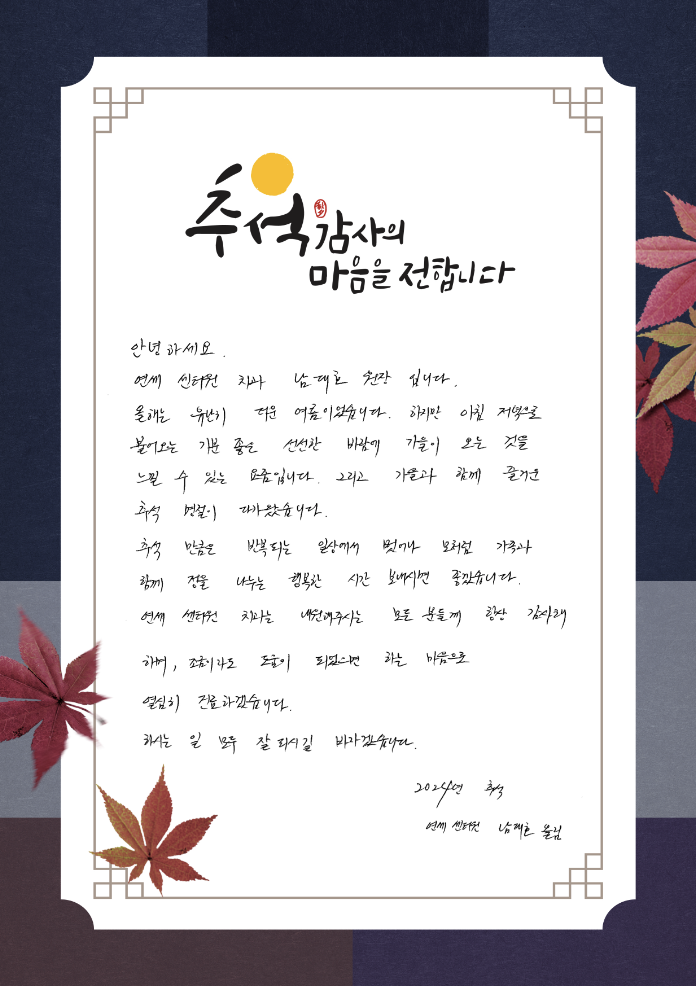 추석 감사의
마음을 전합니다
안녕하세요.
연세 센터원 치과 남대호 원장 입니다.
올해는 유난히 더운 여름이었습니다. 하지만 아침 저녁으로
불어오는 기분 좋은 선선한 바람에 가을이 오는 것을
느낄 수 있는 요즘입니다. 그리고 가을과 함께 즐거운
추석 명절이 다가왔습니다.
추석 만큼은 반복되는 일상에서 벗어나 모처럼 가족과
함께 정을 나누는 행복한 시간 보내시면 좋겠습니다.
연세 센터원 치과는 내원해주시는 모든 분들께 항상 감사해
하며, 조금이라도 도움이 되었으면 하는 마음으로
열심히 진료하겠습니다.
하시는 일 모두 잘 되시길 바라겠습니다.
2024년 추석
연세 센터원 남대호 올림